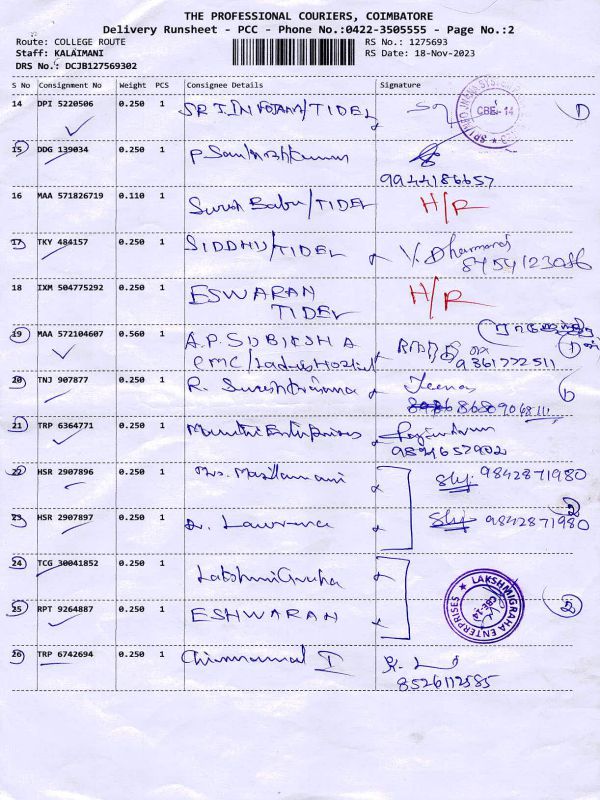 THE PROFESSIONAL COURIERS, COIMBATORE
Delivery Runsheet - PCC - Phone No.:0422-3505555 - Page No.:2
Route: COLLEGE ROUTE
RS No.: 1275693
Staff: KALAIMANI
RS Date: 18-Nov-2023
DRS No.: DCJB127569302
S No Consignment No Weight PCS Consignee Details Signature
14 DPI 5220506 0.250 1 /TIDEL CBE-14 1
15 DDG 139034 0.250 1
9944186657
16 MAA 571826719 0.110 1 Suresh Babu/TIDEL H/R
17 TKY 484157 0.250 1 SIDDHU/TIDEL V. Dharmaraj
8454123086
18 IXM 504775292 0.250 1 ESWARAN H/R
TIDEL
19 MAA 572104607 0.560 1 A.P. SUBIKSHA
CMC/Ladies Hostel 9361772511
20 TNJ 907877 0.250 1 R. Teena
8680906811
21 TRP 6364771 0.250 1 Maruthi Enterprises
9894657902
22 HSR 2907896 0.250 1 Mrs. Masilamani 9842871980
23 HSR 2907897 0.250 1 Dr. Lawrence 9842871980 2
24 TCG 30041852 0.250 1 LakshmiGraha
25 RPT 9264887 0.250 1 ESHWARAN LAKSHMIGRAHA ENTERPRISES 2
26 TRP 6742694 0.250 1 Chinnammal I
8526112585